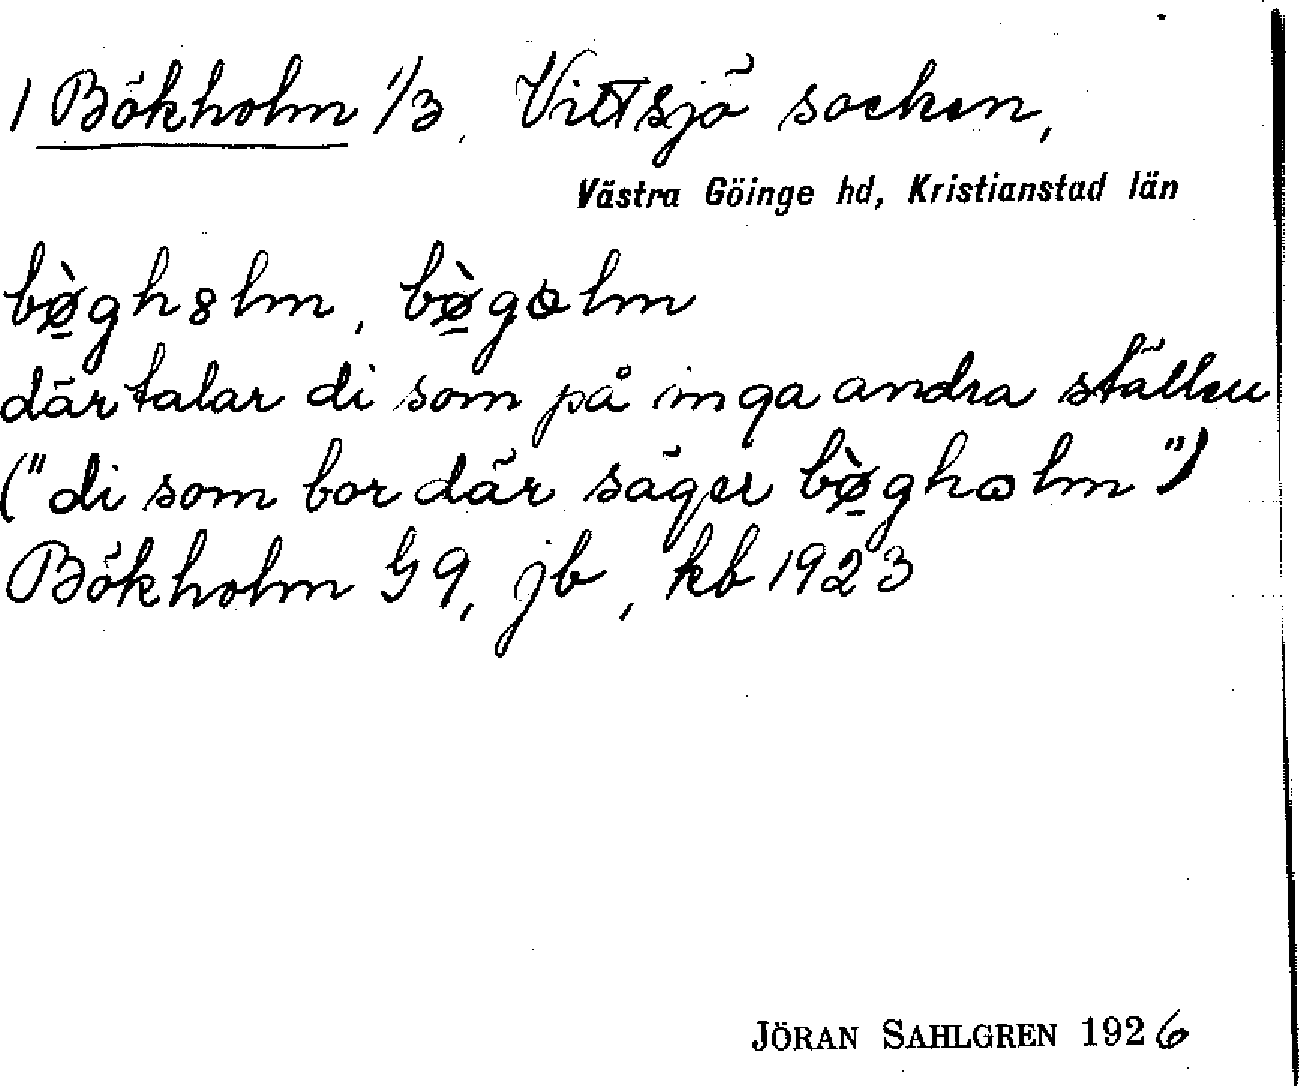 1 Bökholm 1/3, Vittsjö socken,
Västra Göinge hd, Kristianstad län
bø̱̀gh8lm, bø̱̀gɷlm
där talar di som på inga andra ställen
("di som bor där säger bø̱̀ghɷlm")
Bökholm G 9, jb, kb 1923
JÖRAN SAHLGREN 1926